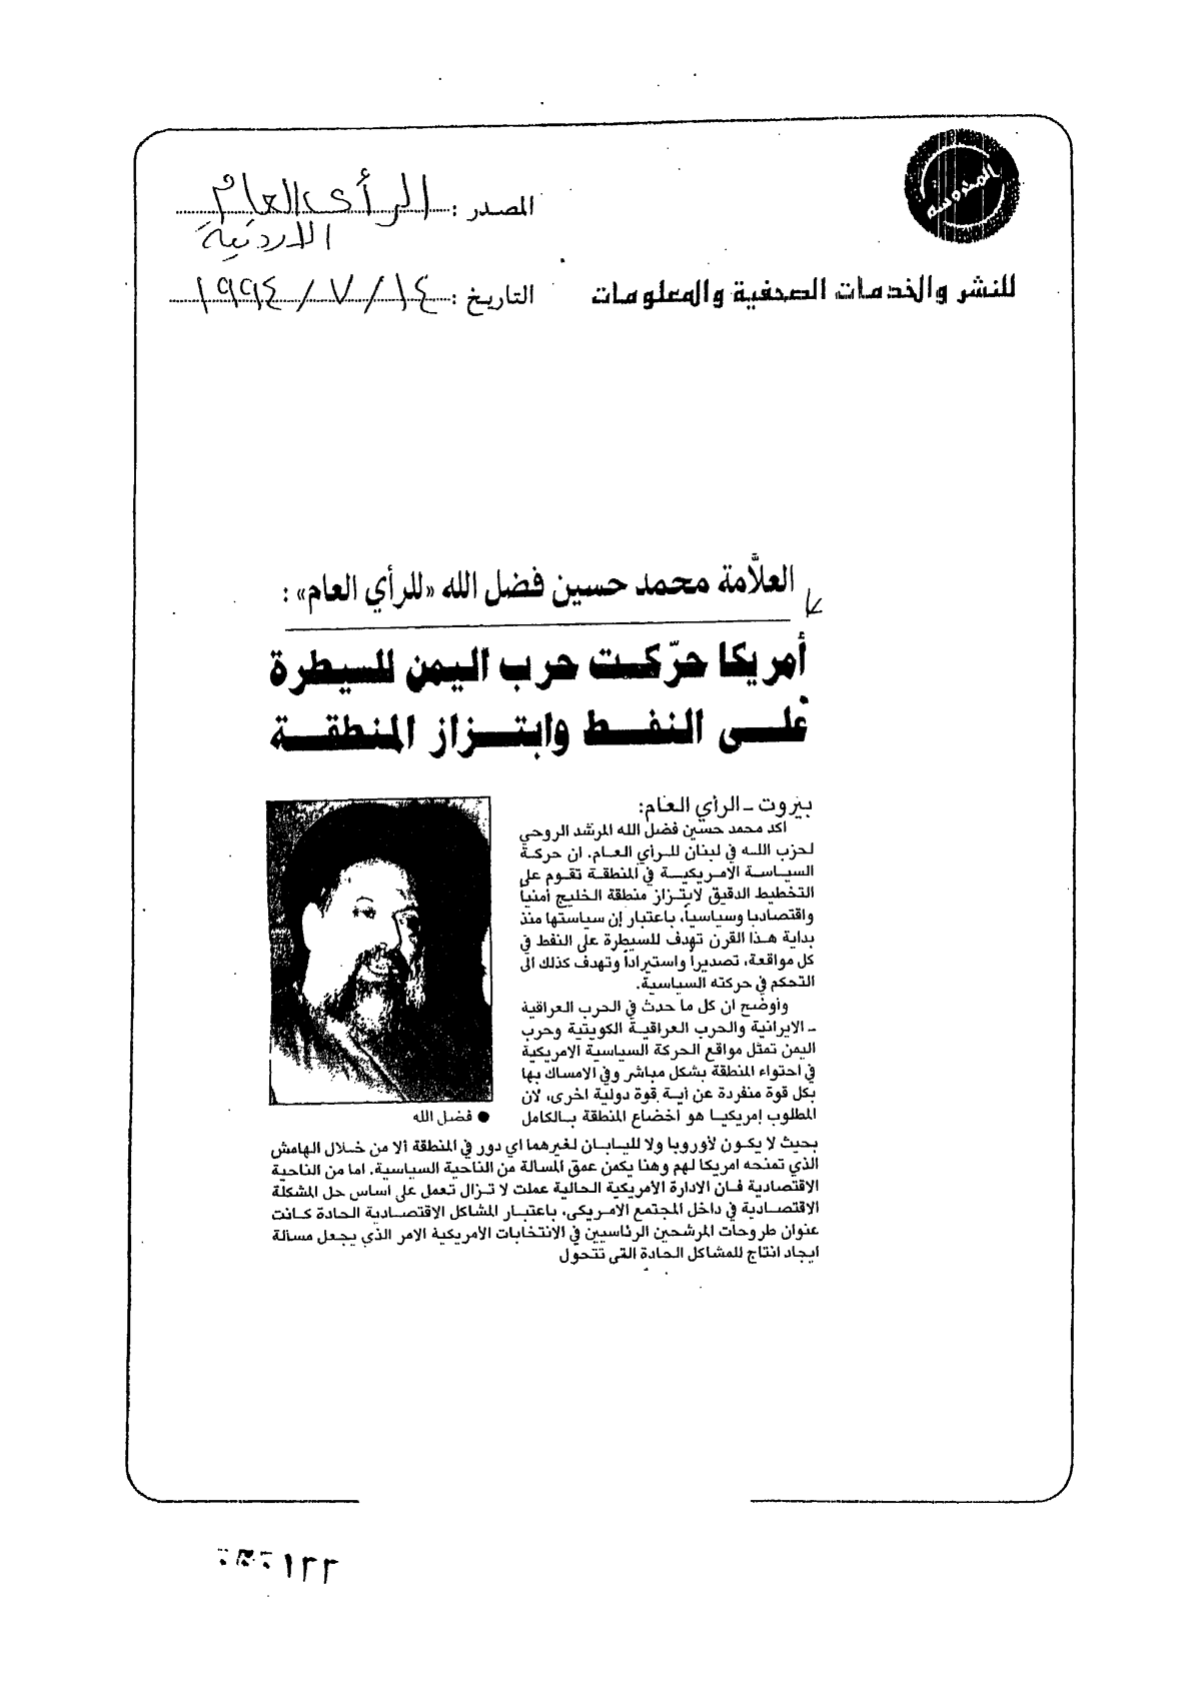 المصدر : الرأي العام
الاردنية
للنشر والخدمات الصحفية والمعلومات
التاريخ : ١٤ / ٧ / ١٩٩٤
العلاَّمة محمد حسين فضل الله «للرأي العام» :
أمريكا حرّكت حرب اليمن للسيطرة
على النفط وابتزاز المنطقة
بيروت ـ الرأي العام:
اكد محمد حسين فضل الله المرشد الروحي
لحزب الله في لبنان للرأي العام. ان حركة
السياسة الامريكية في المنطقة تقوم على
التخطيط الدقيق لابتزاز منطقة الخليج أمنياً
واقتصاديا وسياسياً، باعتبار إن سياستها منذ
بداية هذا القرن تهدف للسيطرة على النفط في
كل مواقعة، تصديراً واستيراداً وتهدف كذلك الى
التحكم في حركته السياسية.
وأوضح ان كل ما حدث في الحرب العراقية
ـ الايرانية والحرب العراقية الكويتية وحرب
اليمن تمثل مواقع الحركة السياسية الامريكية
في احتواء المنطقة بشكل مباشر وفي الامساك بها
بكل قوة منفردة عن أية قوة دولية اخرى، لان
المطلوب إمريكيا هو أخضاع المنطقة بالكامل
● فضل الله
بحيث لا يكون لأوروبا ولا لليابان لغيرهما اي دور في المنطقة ألا من خلال الهامش
الذي تمنحه امريكا لهم وهنا يكمن عمق المسالة من الناحية السياسية. اما من الناحية
الاقتصادية فان الادارة الأمريكية الحالية عملت لا تزال تعمل على اساس حل المشكلة
الاقتصادية في داخل المجتمع الامريكي، باعتبار المشاكل الاقتصادية الحادة كانت
عنوان طروحات المرشحين الرئاسيين في الانتخابات الأمريكية الامر الذي يجعل مسالة
ايجاد انتاج للمشاكل الحادة التي تتحول